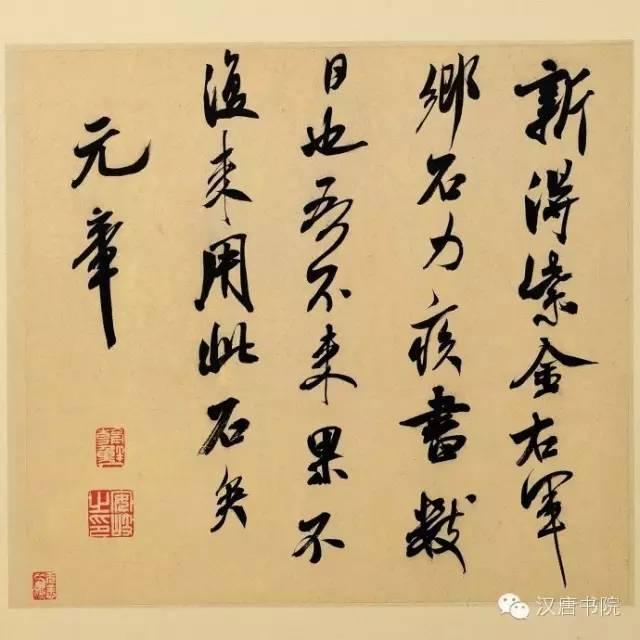 新得紫金右軍
鄉石力疾書數
日也吾不來果不
復来用此石矣
元章
汉唐书院